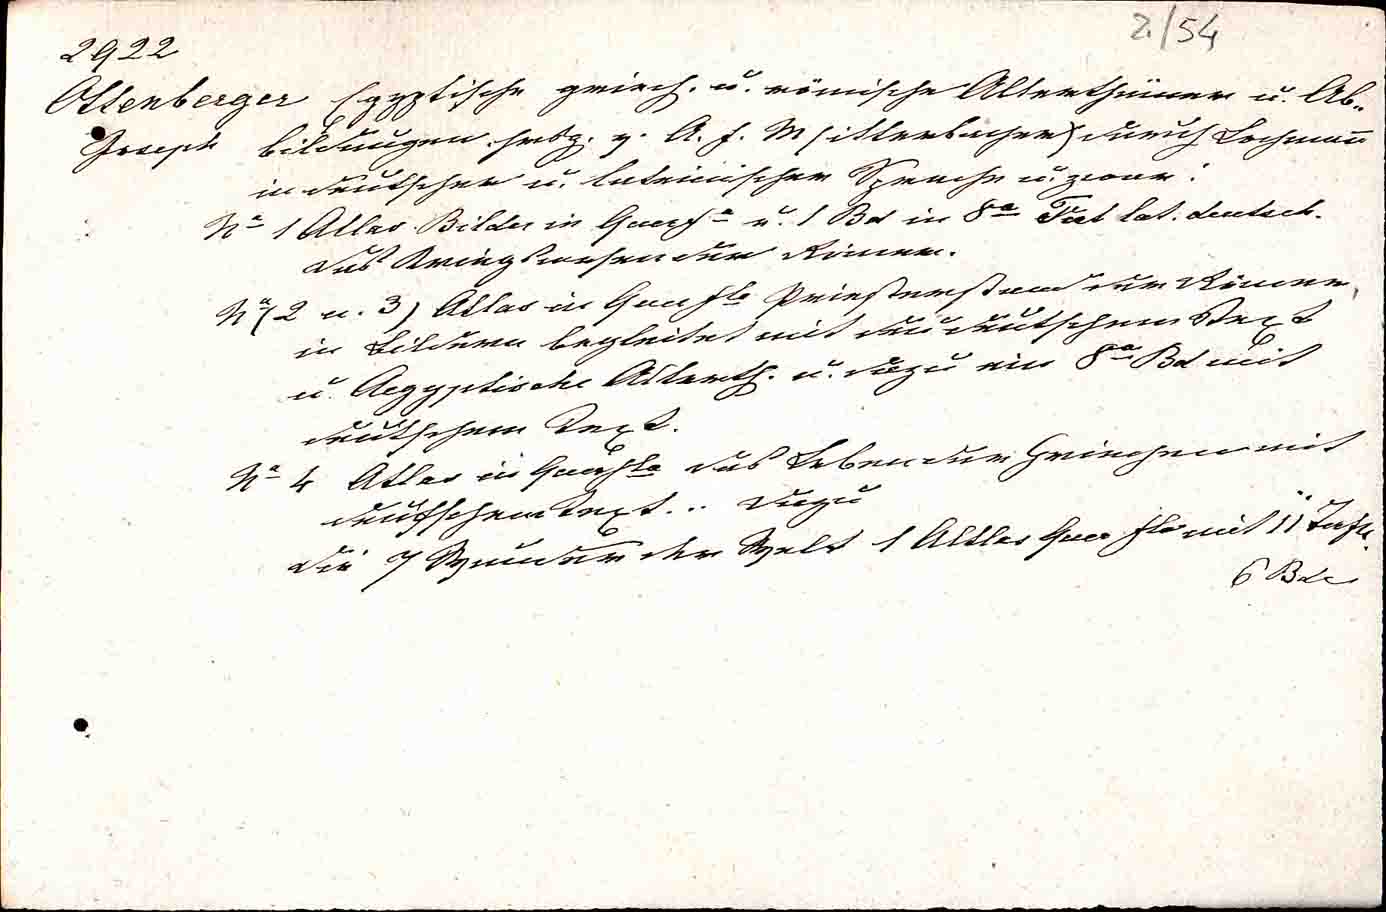 2/54
2922
Ottenberger Egyptische griech. u. römische Alterthümer u. Ab-
Joseph bildungen hrsg. v. A. F. M(itterbacher) durch Lochmann
in deutscher u. lateinischer Sprache u. zwar:
No 1 Atlas Bilder in Querfo u. 1 Bd in 8o Text lat. deutsch.
das Kriegswesen der Römer.
No (2 u. 3) Atlas in Querflo Priesterstand der Römer,
in Bildern begleitet mit deutschem Text
u. Aegyptische Alterth. u. dazu ein 8o Bd mit
deutschem Text.
No 4 Atlas in Querflo das Leben der Griechen mit
deutschem Text... dazu
die 7 Wunder der Welt 1 Atlas Querflo mit 11 Tafe.
6 Bde